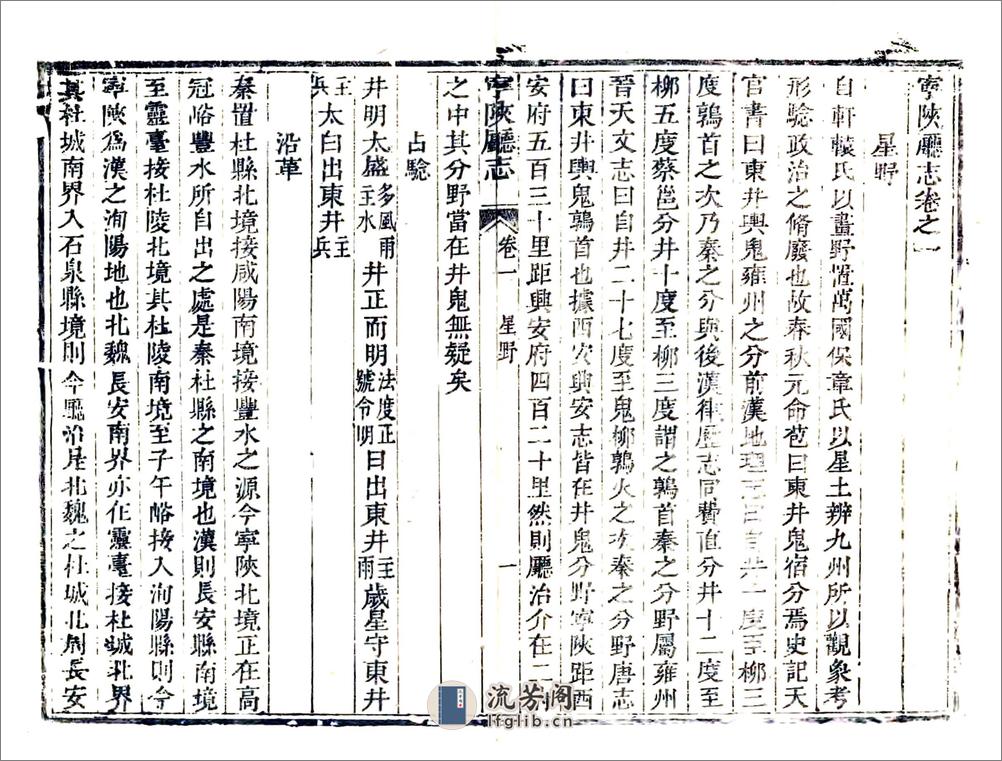 寧陝廳志卷之一
星野
自軒轅氏以畫野置萬國保章氏以星土辨九州所以觀象考
形驗政治之脩廢也故春秋元命苞曰東井鬼宿分焉史記天
官書曰東井輿鬼雍州之分前漢地理志曰自井十度至柳三
度鶉首之次乃秦之分與後漢律歷志同費直分井十二度至
柳五度蔡邕分井十度至柳三度謂之鶉首秦之分野屬雍州
晉天文志曰自井二十七度至鬼柳鶉火之次秦之分野唐志
曰東井輿鬼鶉首也據西安興安志皆在井鬼分野寧陝距西
安府五百三十里距興安府四百二十里然則廳治介在二
之中其分野當在井鬼無疑矣
寧陝廳志 卷一 星野 一
占驗
井明太盛多風雨主水井正而明法度正號令明日出東井主雨歲星守東井
主兵太白出東井主兵
沿革
秦置杜縣北境接咸陽南境接豐水之源今寧陝北境正在高
冠峪豐水所自出之處是秦杜縣之南境也漢則長安縣南境
至靈臺接杜陵北境其杜陵南境至子午峪接入洵陽縣則今
寧陝爲漢之洵陽地也北魏長安南界亦在靈臺接杜城北界
其杜城南界入石泉縣境則今廳治是北魏之杜城北周長安
流芳阁
lfglib.cn